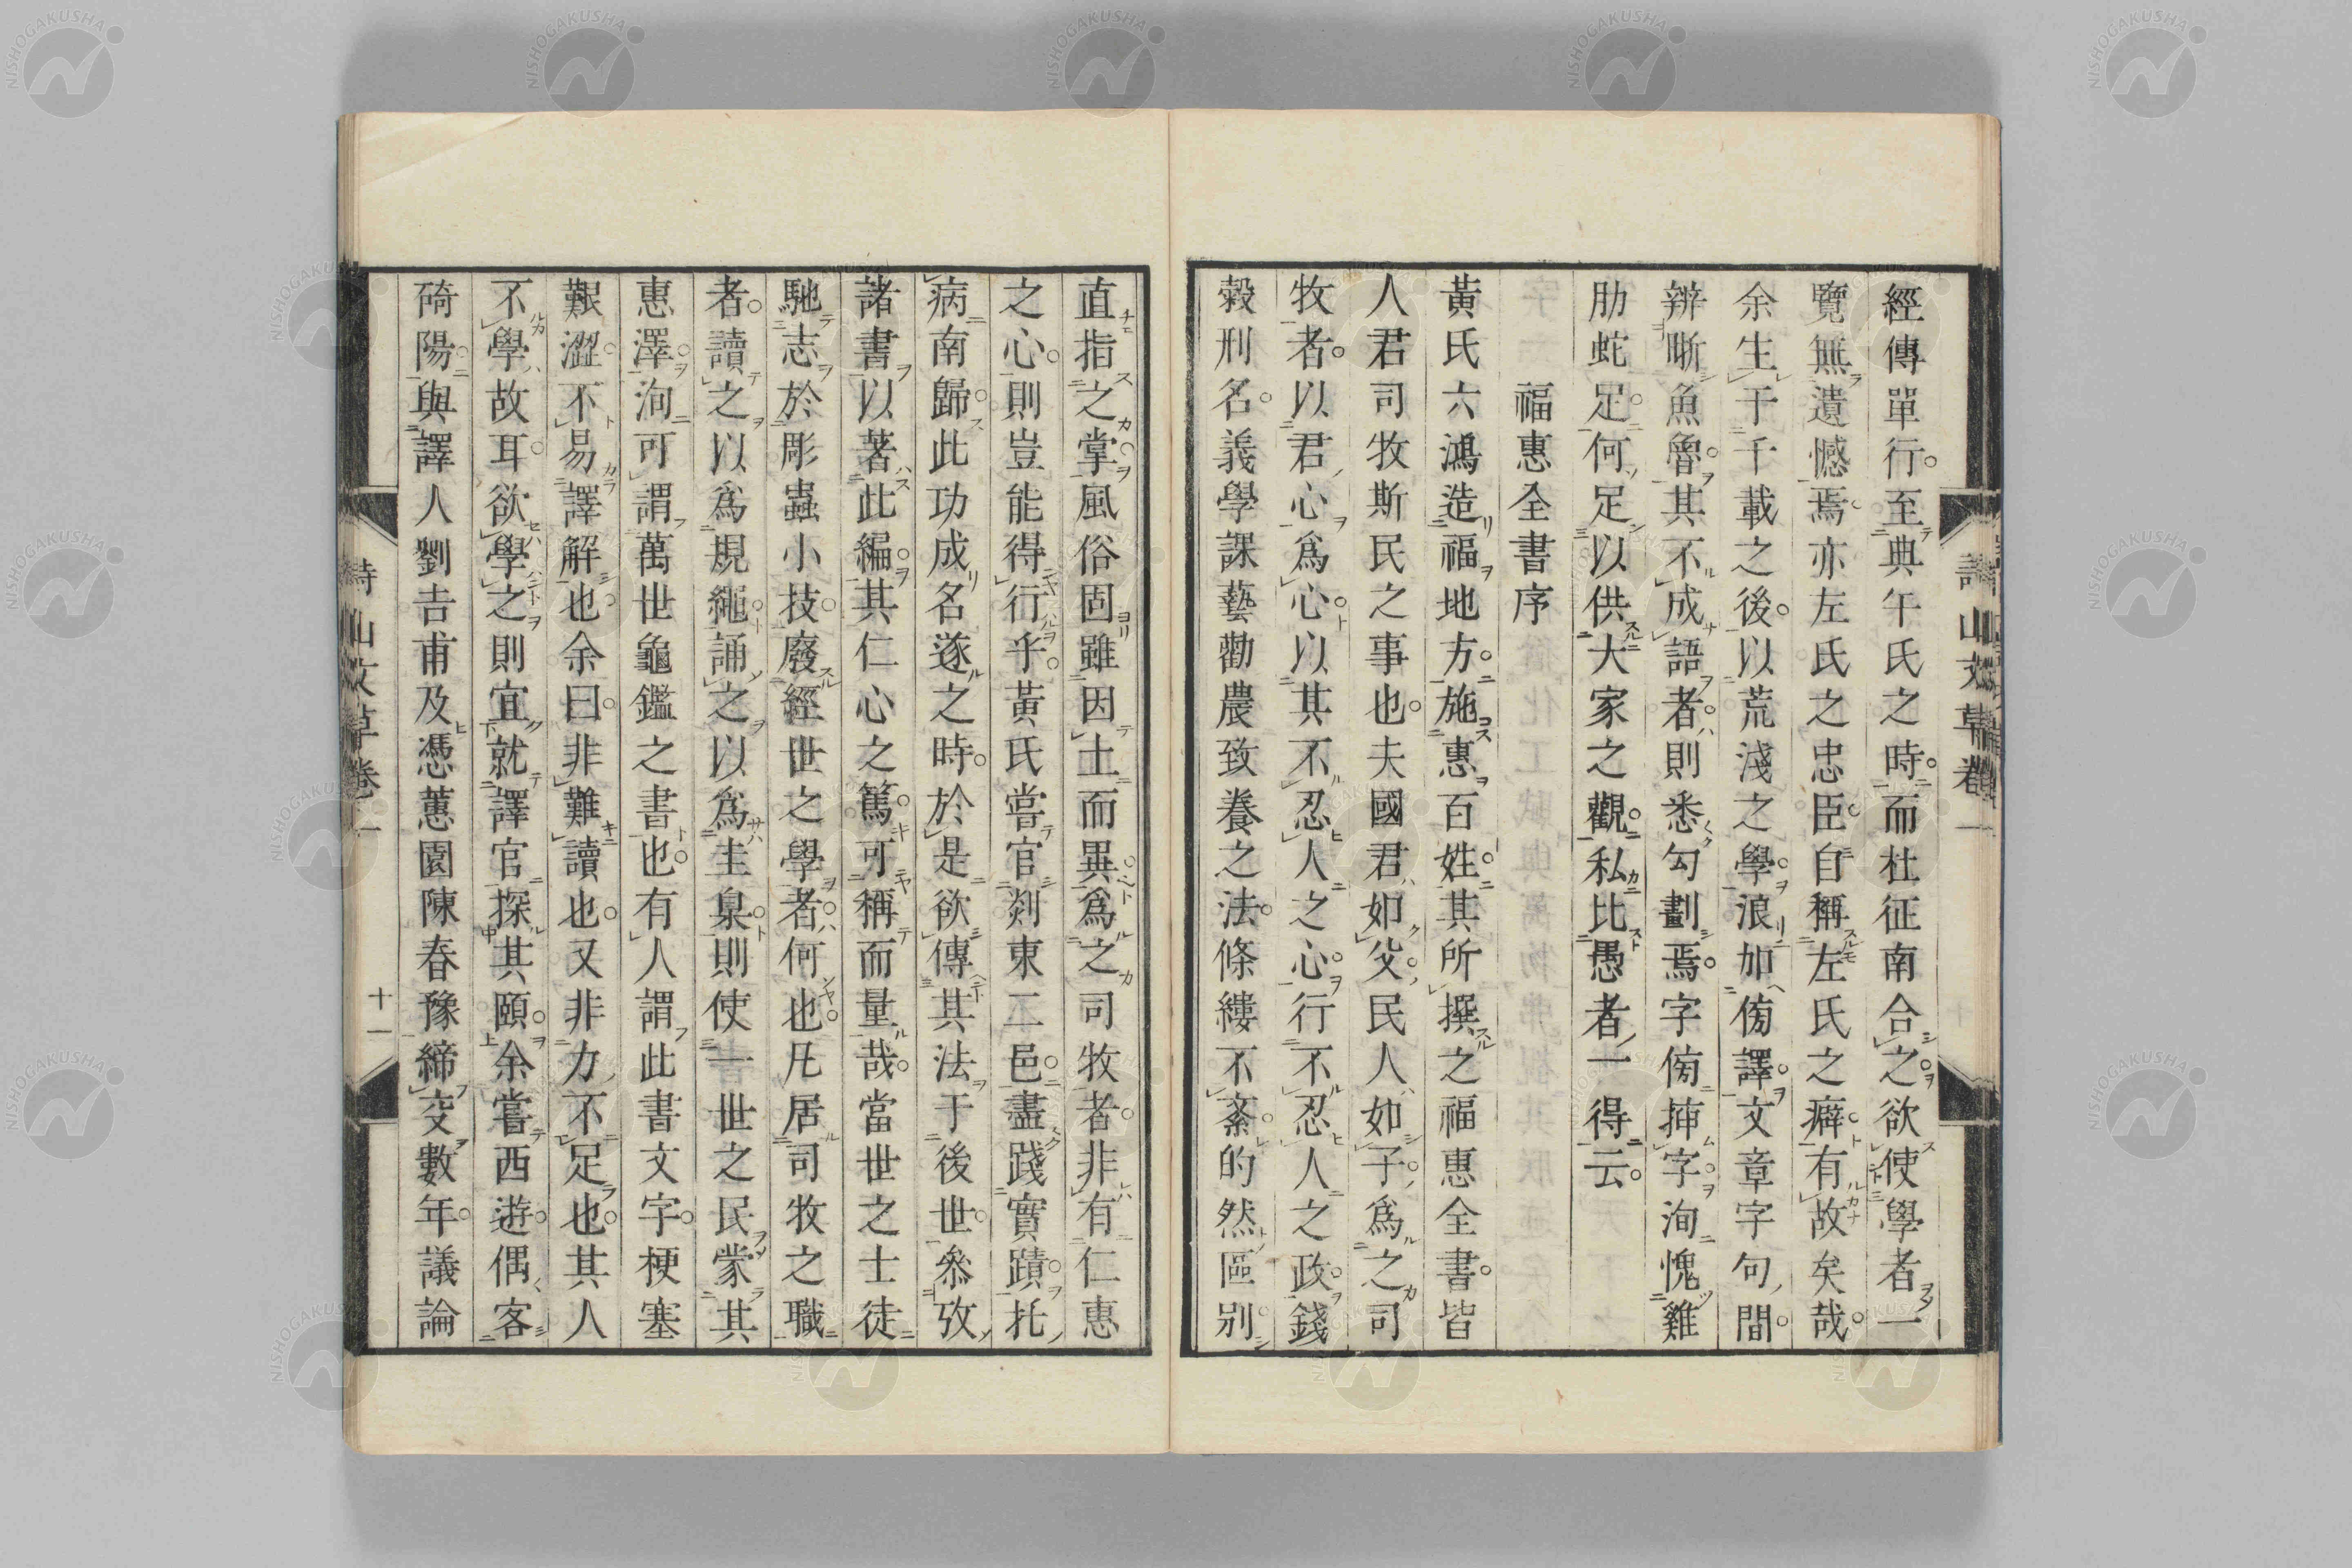 經傳單行至典午氏之時而杜征南合之欲使學者一
覽無遺憾焉亦左氏之忠臣自稱左氏之癖有故矣哉
余生于千載之後以荒淺之學浪加傍譯文章字句間
辨晰魚魯其不成語者則悉勾劃焉字傍挿字洵愧雞
肋蛇足何足以供大家之觀私比愚者一得云
福惠全書序
黃氏六鴻造福地方施惠百姓其所撰之福惠全書皆
人君司牧斯民之事也夫國君如父民人如子爲之司
牧者以君心爲心以其不忍人之心行不忍人之政錢
穀刑名義學課藝勸農致養之法條縷不紊的然區別
直指之掌風俗固雖因土而異爲之司牧者非有仁惠
之心則豈能得行乎黃氏嘗官剡東二邑盡踐實蹟托
病南歸此功成名遂之時於是欲傳其法于後世叅攷
諸書以著此編其仁心之篤可稱而量哉當世之士徒
馳志於彫蟲小技廢經世之學者何也凡居司牧之職
者讀之以爲規繩誦之以爲圭臬則使一世之民蒙其
惠澤洵可謂萬世龜鑑之書也有人謂此書文字梗塞
艱澀不易譯解也余曰非難讀也又非力不足也其人
不學故耳欲學之則宜就譯官探其頤余嘗西遊偶客
碕陽與譯人劉吉甫及馮蕙園陳春豫締交數年議論
詩山文草卷一
十一
詩山文草卷一
NISHOGAKUSHA